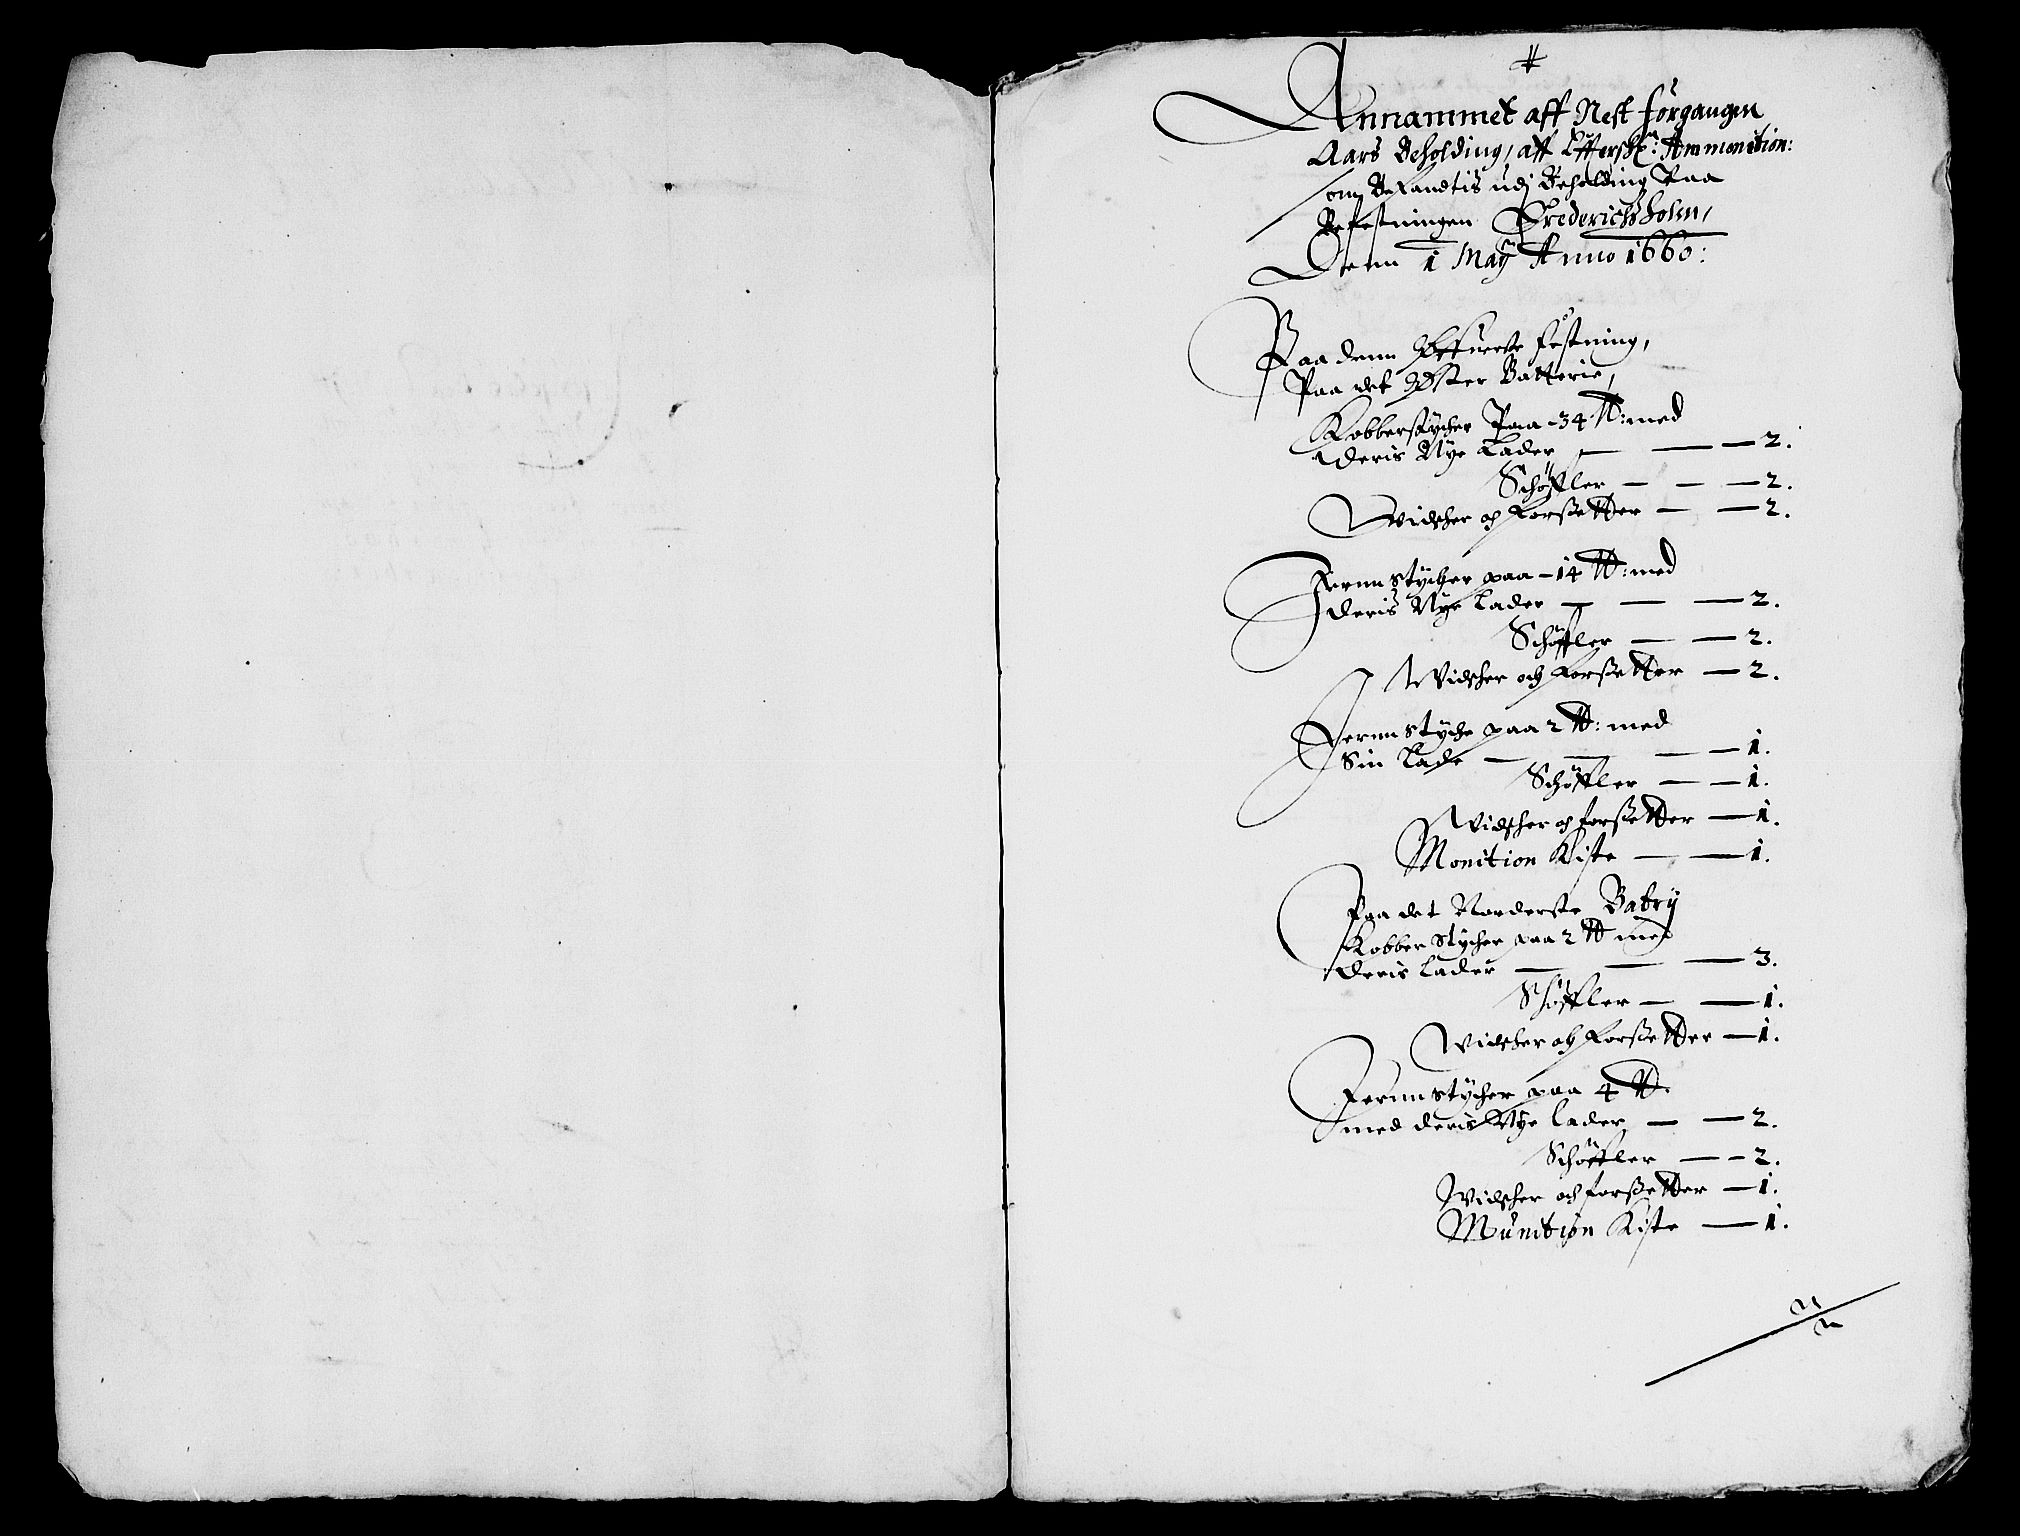 Annammet aff Nest förgangen
Aars Beholding, aff Effterskr: Ammonition:
som Befandtis udj Beholding Paa
Befestningen Frederichsholm,
Denn 1 Maÿ Anno 1660:
Paa denn Öffuerste festning,
Paa det Öster Batterie,
Kobberstÿcher Paa - 34 ℔: med
deris Nÿe Lader — — — 2.
Schöffler — — — 2.
Widscher och forßetter — — 2.
Jernn stÿcher paa - 14 ℔: med
deris Nÿe Lader — — — 2.
Schöffler — — 2.
Widscher och forßetter — 2.
Jernn stÿche paa 2 ℔: med
Sin Lade — — — — 1.
Schöffler — — 1.
Widscher och forßetter — 1.
Monition Kiste — — 1.
Paa det Norderste Batrij
Kobber stÿcher paa 2 ℔ med
deris Lader — — — 3.
Schöffler — — 1.
Widscher och forßetter — 1.
Jernn stÿcher paa 4 ℔.
med deris Nÿe Lader — — 2.
Schöffler — — 2.
Widscher och forßetter — 1.
Munition Kiste — 1.